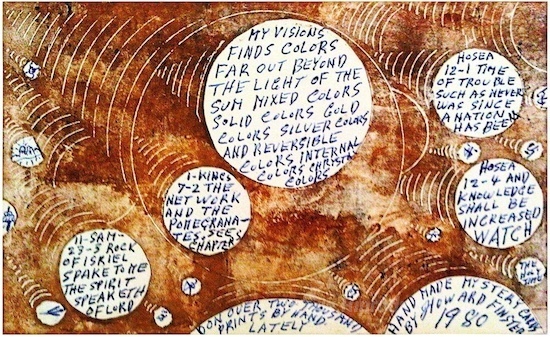 MY VISIONS
FINDS COLORS
FAR OUT BEYOND
THE LIGHT OF THE
SUM MIXED COLORS
SOLID COLORS GOLD
COLORS SILVER COLORS
AND REVERSIBLE
COLORS INTERNAL
COLORS
COLORS
HOSEA
12-1 TIME
OF TROUBLE
SUCH AS NEVER
WAS SINCE
A NATION
HAS BEEN
1-KINGS
7-2 THE
NET WORK
AND THE
POMEGRANA-
TES. SEE
CHAPTERS
HOSEA
12-4 AND
KNOWLEDGE
SHALL BE
INCREASED
WATCH
11-SAM
23-3 ROCK
OF ISRIEL
SPAKE TO ME
THE SPIRIT
SPEAKETH
OF LORD
THE
HOLY
DON OVER TWO THOUSAND
PRINTS BY HAND
LATELY
HAND MADE MYSTERY CARDS
BY HOWARD FINSTER
1980